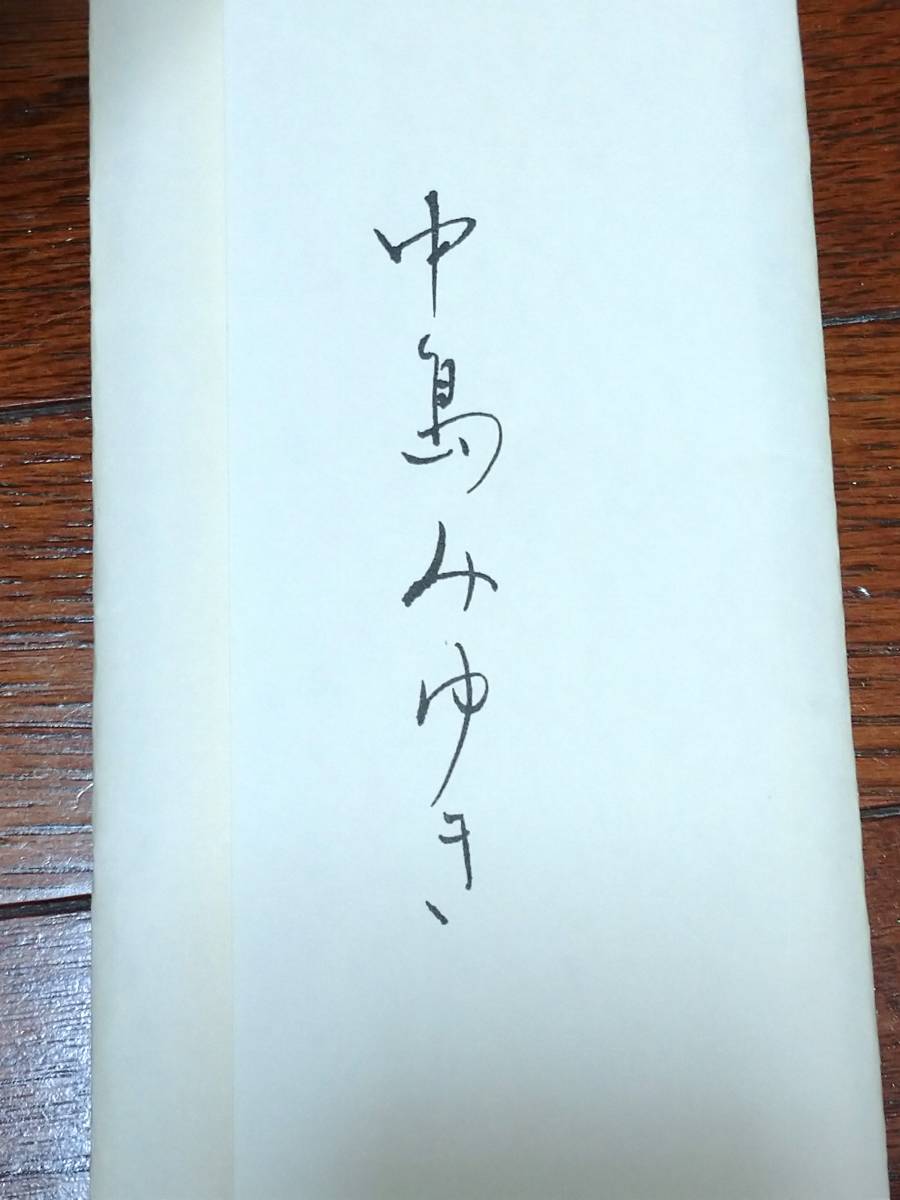 中島みゆき